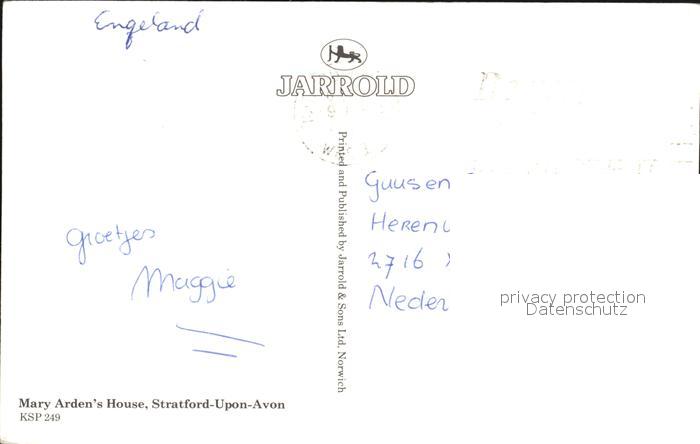 Engeland
JARROLD
Printed and Published by Jarrold & Sons Ltd. Norwich
Guus en
Heren
2716
Neder
groetjes
Maggie
privacy protection
Datenschutz
Mary Arden's House, Stratford-Upon-Avon
KSP 249